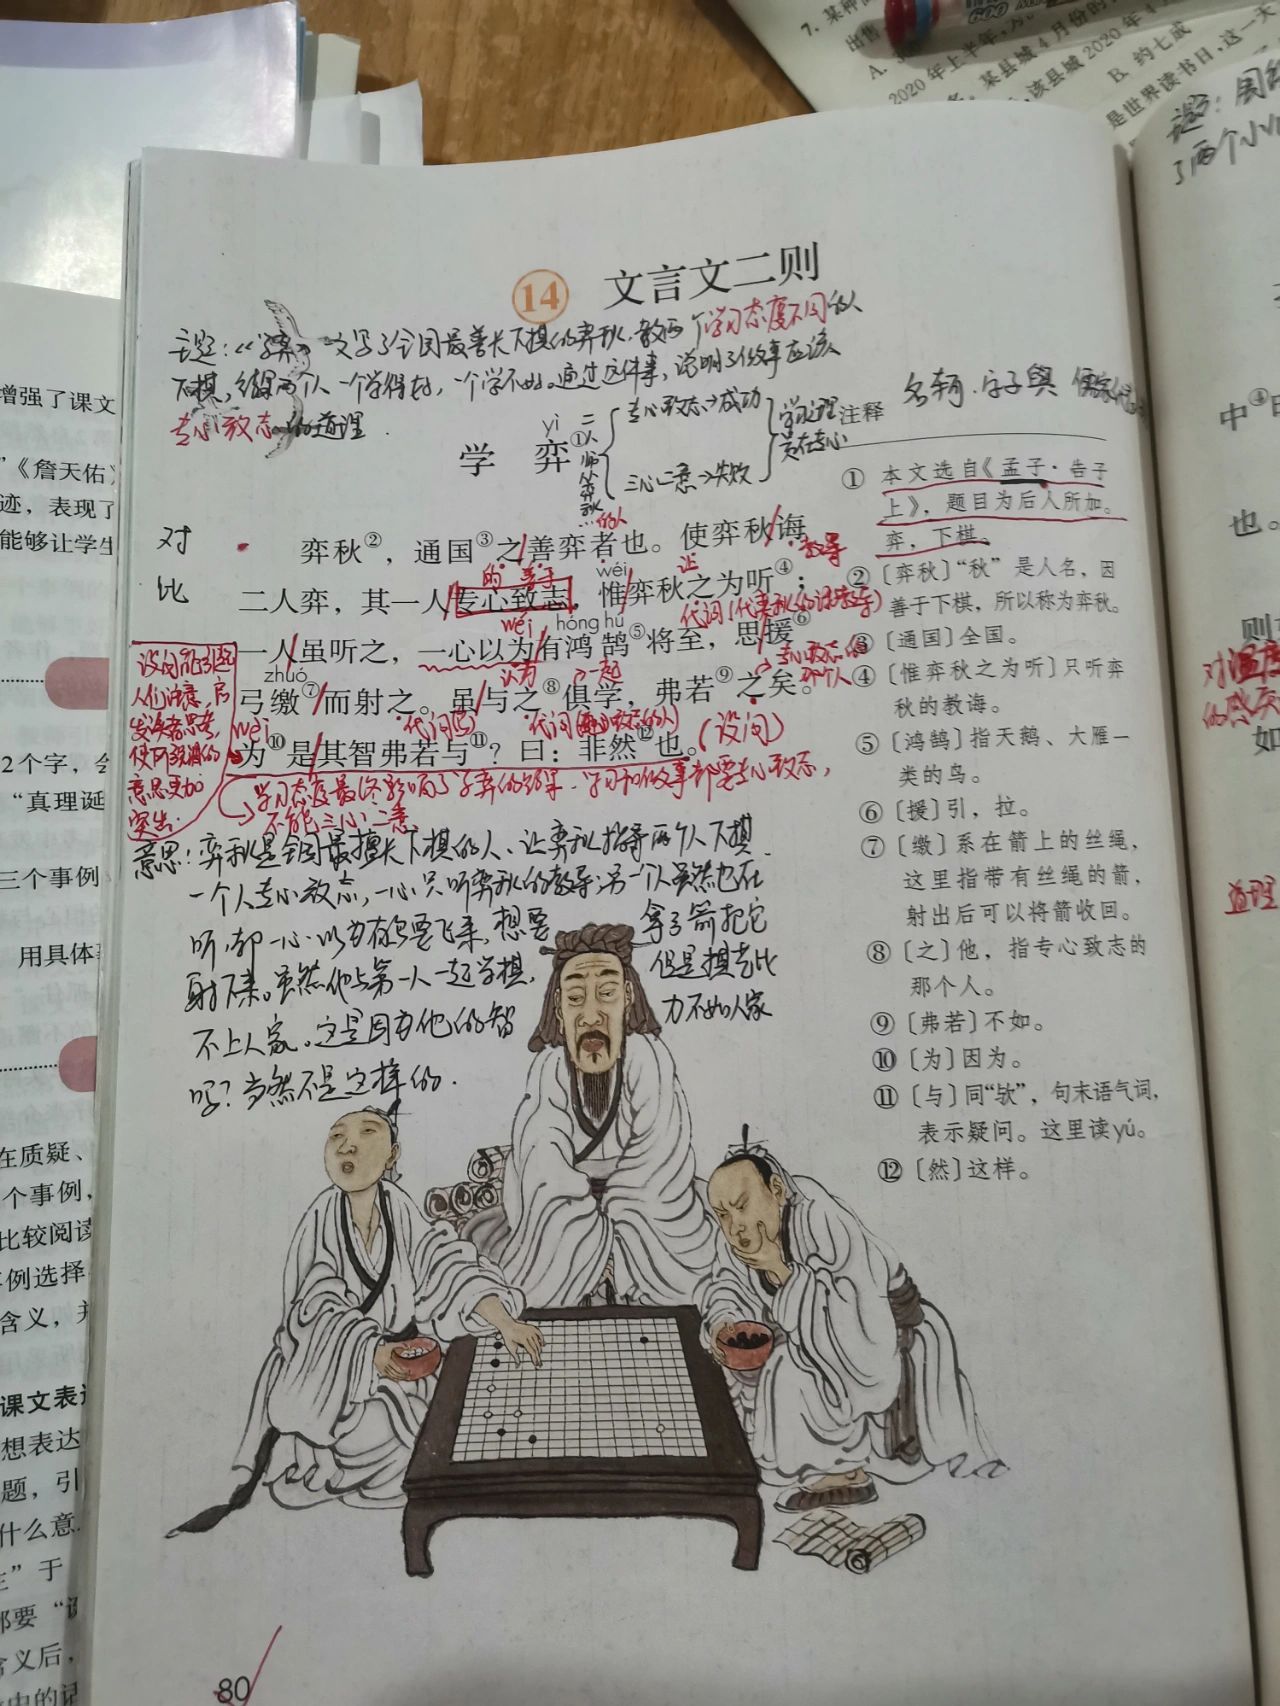 14 文言文二则
主题:《学弈》一文写了全国最善长下棋的弈秋,教两个学习态度不同的人
下棋,结果两个人一个学得好,一个学不好。通过这件事,说明了做事应该
专心致志的道理.
名轲.字子舆
yì
学 弈①
二人师从弈秋
专心致志→成功
三心二意→失败
注释
对
比
的人
弈秋②,通国③之善弈者也。使弈秋诲
的 善于
让
教导
wéi
二人弈,其一人专心致志,惟弈秋之为听④;
wéi
hóng hú
一人虽听之,一心以为有鸿鹄⑤将至,思援⑥
认为
一起
zhuó
弓缴⑦而射之。虽与之⑧俱学,弗若⑨之矣。
wèi
为⑩是其智弗若与⑪?曰:非然⑫也。(设问)
设问能引起
人们注意,启
发读者思考,
意思更加
突出.
学习态度最终影响了学弈的结果.学习和做事都要专心致志,
不能三心二意
意思:弈秋是全国最擅长下棋的人、让弈秋指导两个人下棋.
一个人专心致志,一心只听弈秋的教导;另一个人虽然也在
听,却一心以为有鸟要飞来,想要拿了箭把它
射下来。虽然他与第一人一起学棋,但是棋艺比
不上人家。这是因为他的智力不如人家
吗?当然不是这样的.
① 本文选自《孟子·告子
上》,题目为后人所加。
弈,下棋。
②〔弈秋〕“秋”是人名,因
善于下棋,所以称为弈秋。
③〔通国〕全国。
④〔惟弈秋之为听〕只听弈
秋的教诲。
⑤〔鸿鹄〕指天鹅、大雁一
类的鸟。
⑥〔援〕引,拉。
⑦〔缴〕系在箭上的丝绳,
这里指带有丝绳的箭,
射出后可以将箭收回。
⑧〔之〕他,指专心致志的
那个人。
⑨〔弗若〕不如。
⑩〔为〕因为。
⑪〔与〕同“欤”,句末语气词,
表示疑问。这里读yú。
⑫〔然〕这样。
80
增强了课文
”《詹天佑》
迹,表现了
能够让学生
2个字,会
“真理诞
三个事例
用具体
在质疑、
个事例,
比较阅读
例选择
含义,并
课文表达
想表达
题,引
什么意
”于
含义后,
中④
也。
则
如
道理
7. 某种
出售
2020年上半年,
某县城4月份的
该县城2020年4
B. 约七成
是世界读书日,这一天
了两个小